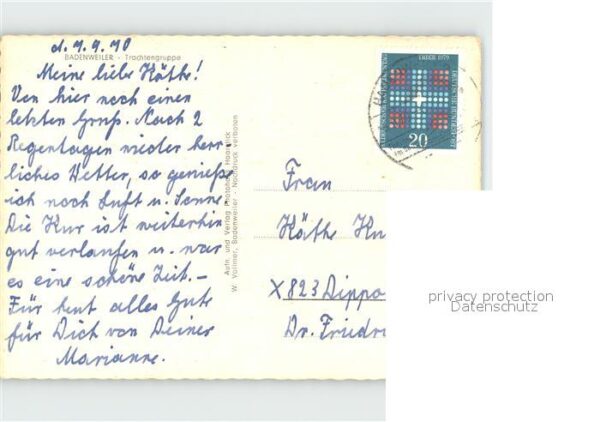 d. 7.9.70
BADENWEILER - Trachtengruppe
Meine liebe Käthe!
Von hier noch einen
letzten Gruß. Nach 2
Regentagen wieder herr
liches Wetter, so genieße
ich noch Luft u. Sonne
Die Kur ist weiterhin
gut verlaufen u. war
es eine schöne Zeit. -
Für heut alles Gute
für Dich von Deiner
Marianne.
Aufn. und Verlag Photohaus
W. Vollmer, Badenweiler - Nachdruck verboten
20
Frau
Käthe Ku
X 823 Dippo
Dr. Friedri
privacy protection
Datenschutz